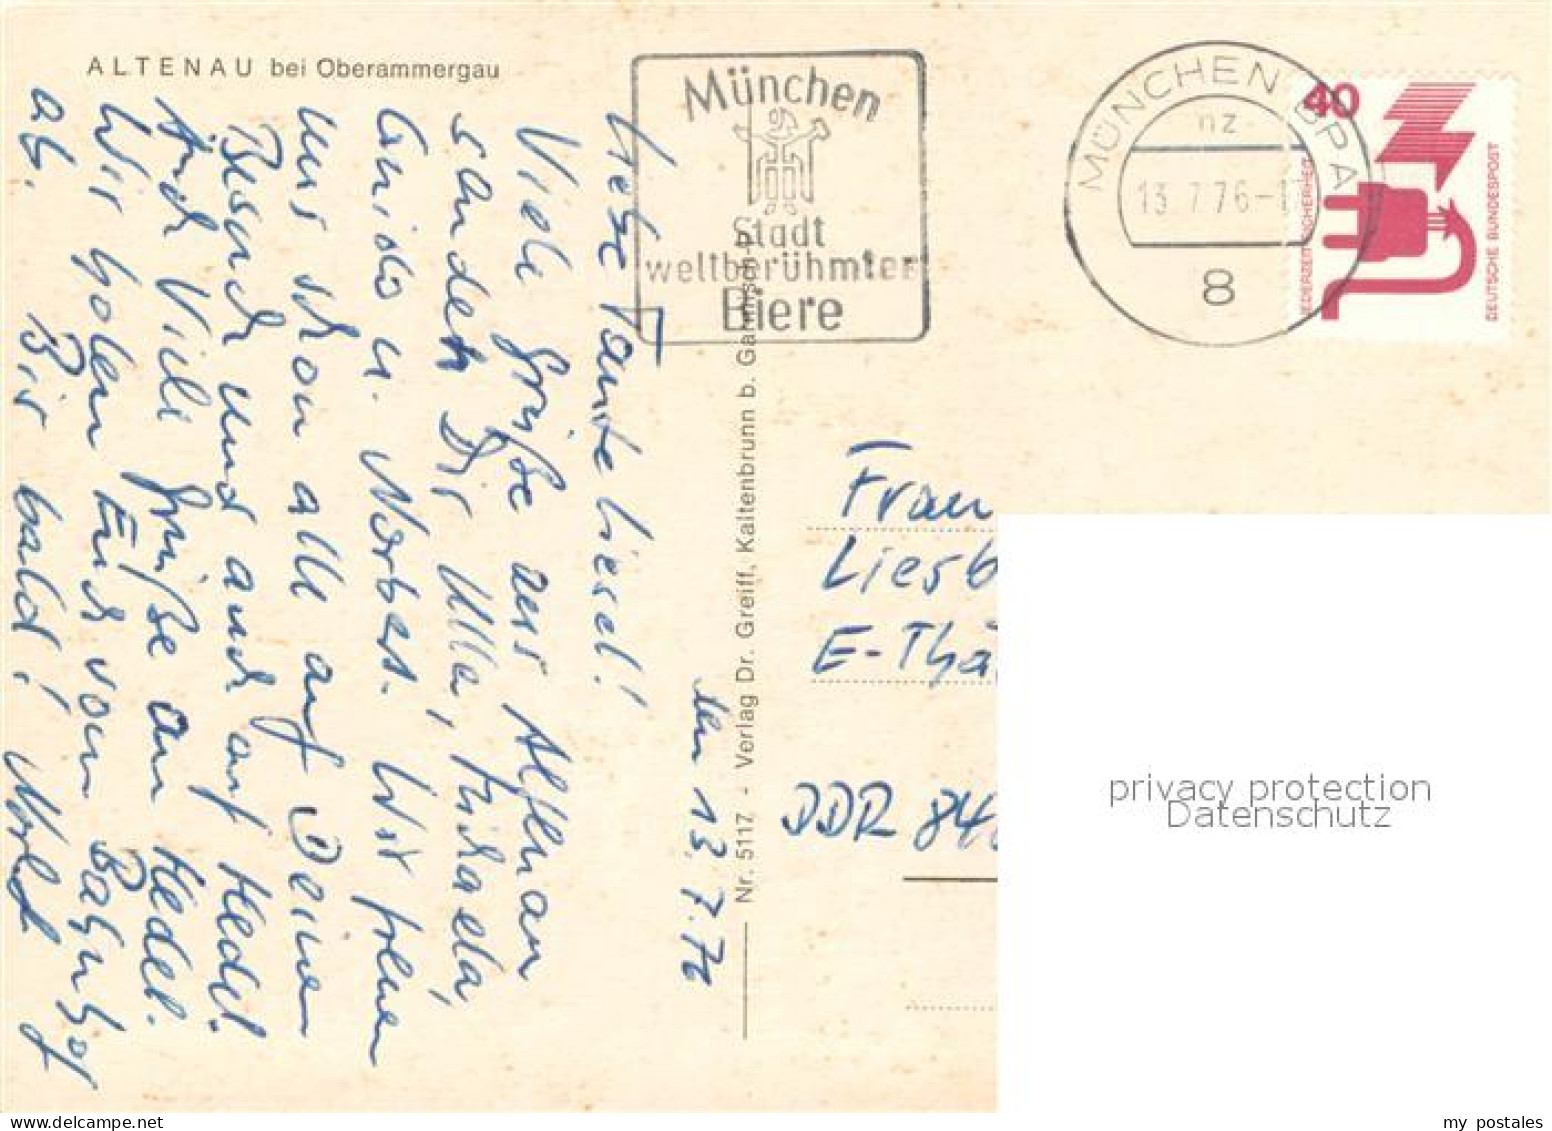 ALTENAU bei Oberammergau
München
Stadt
weltberühmter
Biere
MÜNCHEN BPA
nz
13.7.76-1
8
40
JEDERZEIT SICHERHEIT
DEUTSCHE BUNDESPOST
den 13.7.76
Liebe Tante Liesel!
Viele Grüße aus Altenau
senden Dir Ulla, Michaela,
Guido u. Norbert. Wir freuen
uns schon alle auf Deinen
Besuch und auch auf Hedel.
Auch Viele Grüße an Hedel.
Wir holen Euch vom Bahnhof
ab. Bis bald!
Nr. 5117 - Verlag Dr. Greiff, Kaltenbrunn b. Garmisch-P.
Frau
Liesb
E-Thä
DDR 84
privacy protection
Datenschutz
my postales